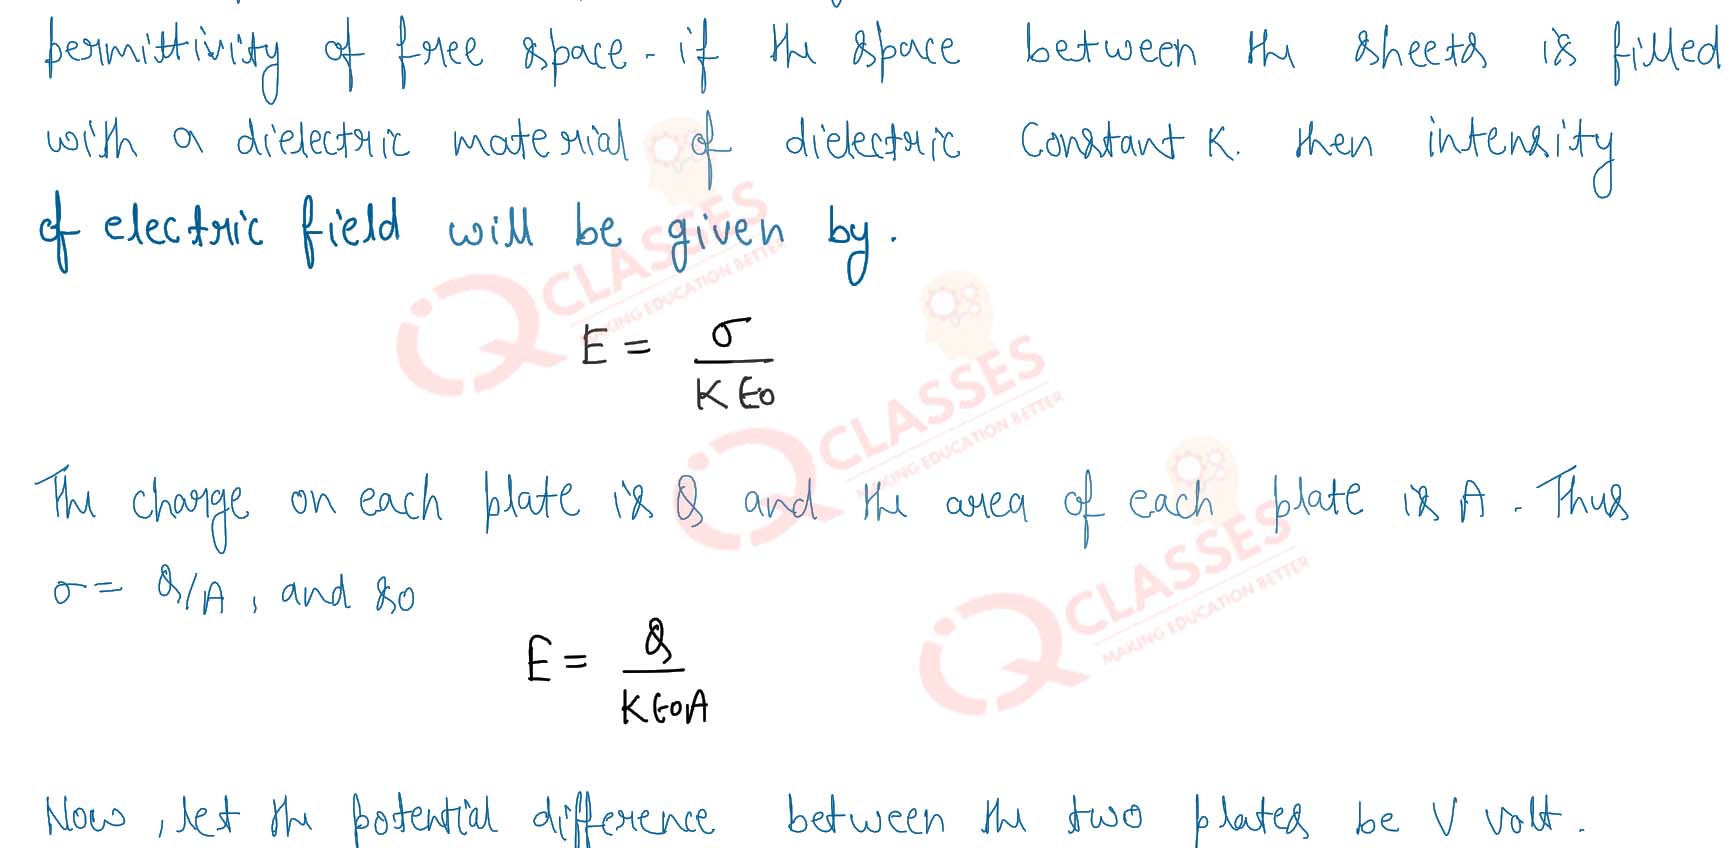 permittivity of free space - if the space between the sheets is filled
with a dielectric material of dielectric Constant K. then intensity
of electric field will be given by.
E = σ / K ε0
The charge on each plate is Q and the area of each plate is A. Thus
σ = Q/A, and so
E = Q / K ε0 A
Now, let the potential difference between the two plates be V volt.
iQ CLASSES
MAKING EDUCATION BETTER
iQ CLASSES
MAKING EDUCATION BETTER
iQ CLASSES
MAKING EDUCATION BETTER